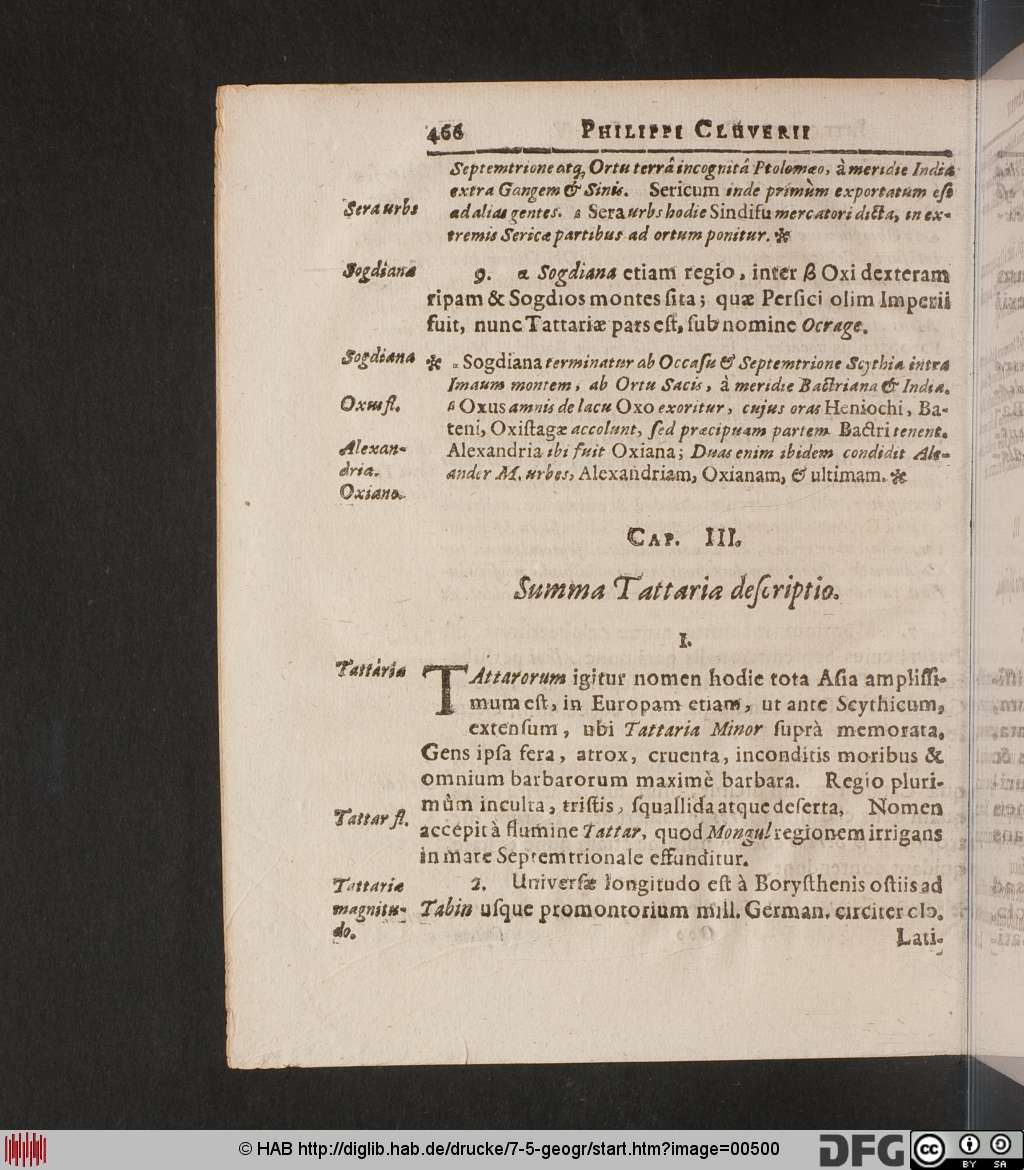 466 PHILIPPI CLUVERII
Septemtrione atq; Ortu terrâ incognitâ Ptolomæo, à meridie India
extra Gangem & Sinis. Sericum inde primùm exportatum est
Sera urbs
ad alias gentes. β Sera urbs hodie Sindifu mercatori dicta, in ex-
tremis Sericæ partibus ad ortum ponitur. ✻
Sogdiana
9. α Sogdiana etiam regio, inter β Oxi dexteram
ripam & Sogdios montes sita; quæ Persici olim Imperii
fuit, nunc Tattariæ pars est, sub nomine Ocrage.
Sogdiana
✻ α Sogdiana terminatur ab Occasu & Septemtrione Scythia intra
Imaum montem, ab Ortu Sacis, à meridie Bactriana & India.
Oxus fl.
β Oxus amnis de lacu Oxo exoritur, cujus oras Heniochi, Ba-
teni, Oxistagæ accolunt, sed præcipuam partem Bactri tenent.
Alexan-
dria.
Oxiana.
Alexandria ibi fuit Oxiana; Duas enim ibidem condidit Ale-
ander M. urbes, Alexandriam, Oxianam, & ultimam. ✻
CAP. III.
Summa Tattaria descriptio.
I.
Tattaria
TAttarorum igitur nomen hodie tota Asia amplissi-
mum est, in Europam etiam, ut ante Scythicum,
extensum, ubi Tattaria Minor suprà memorata.
Gens ipsa fera, atrox, cruenta, inconditis moribus &
omnium barbarorum maximè barbara. Regio pluri-
mùm inculta, tristis, squallida atque deserta, Nomen
Tattar fl.
accepit à flumine Tattar, quod Mongul regionem irrigans
in mare Septemtrionale effunditur.
Tattariæ
magnitu-
do.
2. Universæ longitudo est à Borysthenis ostiis ad
Tabin usque promontorium mill. German. circiter cIↄ.
Lati-
© HAB http://diglib.hab.de/drucke/7-5-geogr/start.htm?image=00500
DFG
cc BY SA